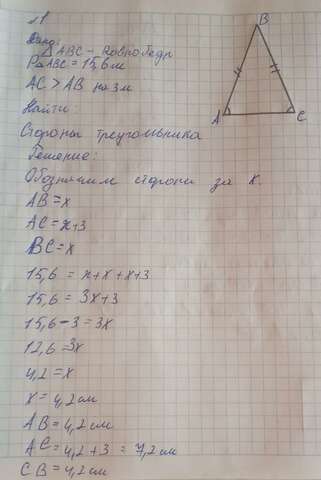 №1
Дано:
△ABC - равнобедр
P△ABC = 15,6 м
AC > AB на 3 м
Найти:
Стороны треугольника
Решение:
Обозначим стороны за x.
AB = x
AC = x+3
BC = x
15,6 = x + x + x+3
15,6 = 3x+3
15,6 - 3 = 3x
12,6 = 3x
4,2 = x
x = 4,2 см
AB = 4,2 см
AC = 4,2 + 3 = 7,2 см
CB = 4,2 см
B
A
C